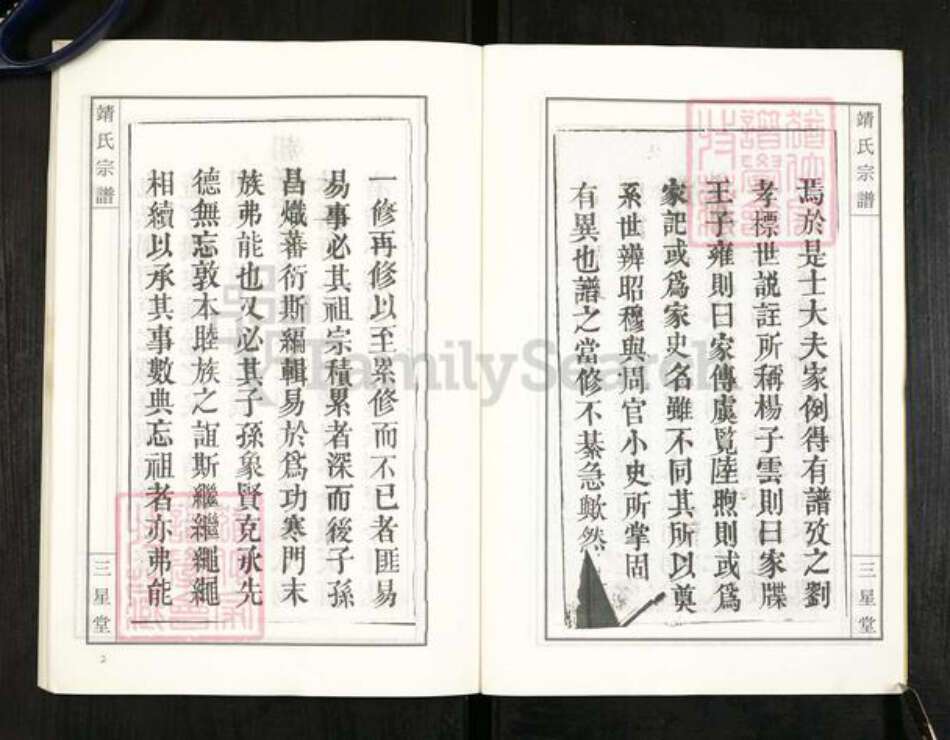 靖氏宗譜
三星堂
焉於是士大夫家例得有譜攷之劉
孝標世説註所稱楊子雲則曰家牒
王子雍則曰家傳虞覽陸煦則或爲
家記或爲家史名雖不同其所以奠
系世辨昭穆與周官小史所掌固
有異也譜之當修不綦急歟然
靖氏宗譜
三星堂
一修再修以至累修而不已者匪易
易事必其祖宗積累者深而後子孫
昌熾蕃衍斯編輯易於爲功寒門末
族弗能也又必其子孫象賢克承先
德無忘敦本睦族之誼斯繼繼繩繩
相續以承其事數典忘祖者亦弗能
2
FamilySearch